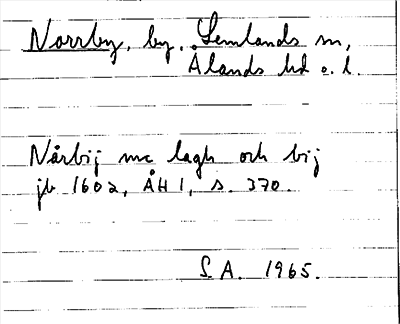 Norrby, by, Lemlands sn,
Ålands hd o. l.
Nårbij mc lagh och bij
jb 1602, ÅH 1, s. 370.
S.A. 1965.